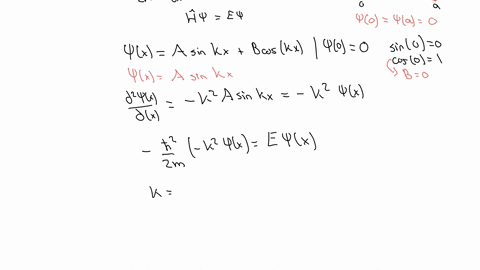 0 a
ĤΨ = EΨ
Ψ(0) = Ψ(a) = 0
Ψ(x) = A sin kx + B cos(kx) | Ψ(0) = 0
sin(0) = 0
cos(0) = 1
Ψ(x) = A sin kx
B = 0
∂²Ψ(x)/∂(x) = -k² A sin kx = -k² Ψ(x)
- ħ²/2m (-k² Ψ(x) = E Ψ(x)
k =